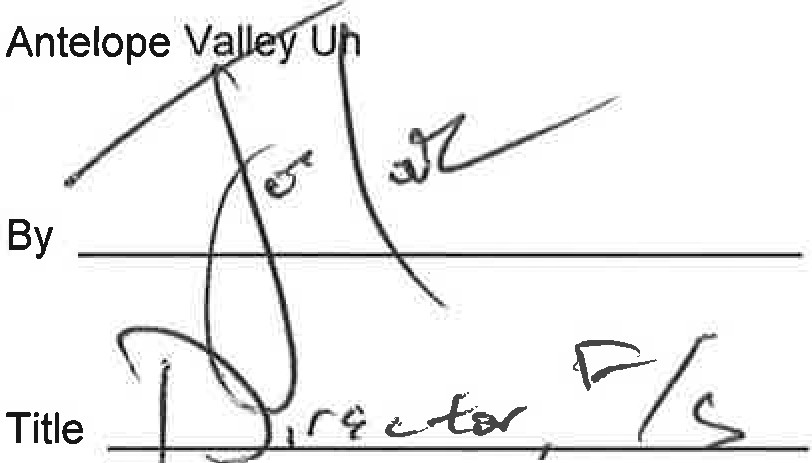 Antelope Valley Un
By
Title Director, F/S